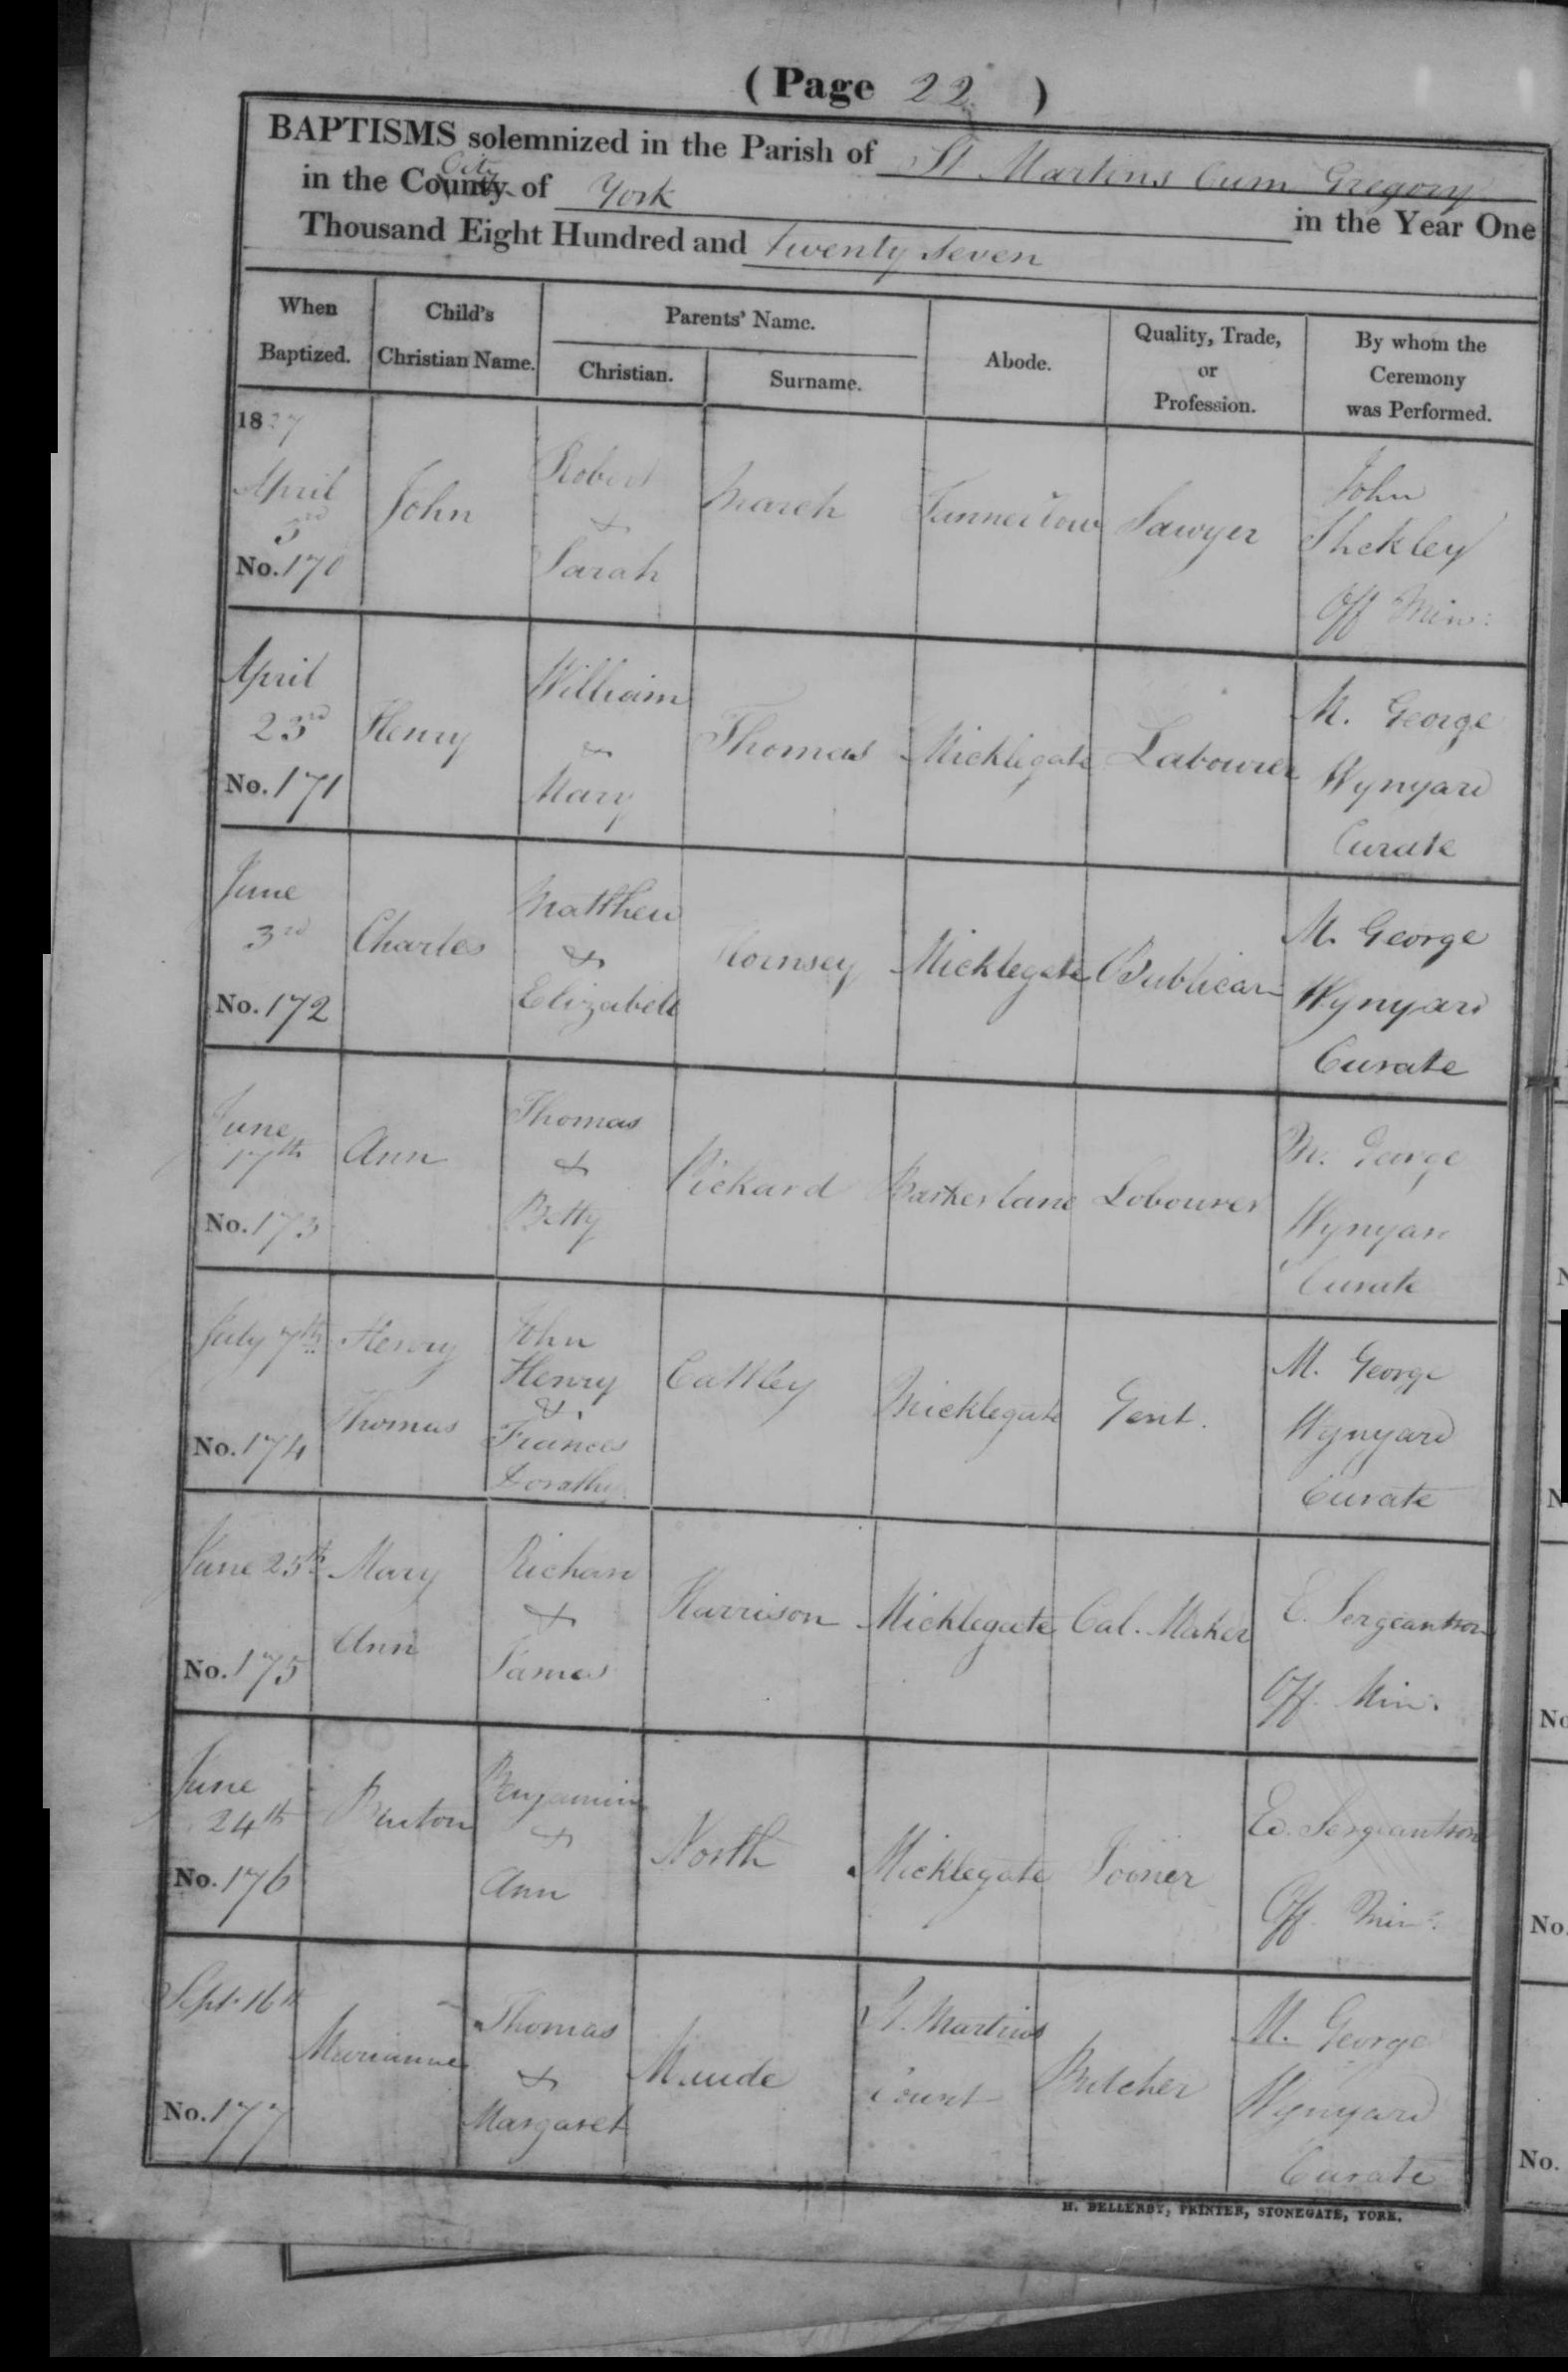 ( Page 22 )
BAPTISMS solemnized in the Parish of St Martins Cum Gregory
City
in the County of York in the Year One
Thousand Eight Hundred and twenty seven
When Baptized.
Child's Christian Name.
Parents' Name.
Christian.
Surname.
Abode.
Quality, Trade, or Profession.
By whom the Ceremony was Performed.
1827
April
3rd
No. 170
John
Robert
&
Sarah
March
Sawyer
John
Off Min:
April
23rd
No. 171
Henry
William
&
Mary
Thomas
Micklegate
Labourer
M. George
Wynyard
Curate
June
3rd
No. 172
Charles
Matthew
&
Elizabeth
Hornsey
Micklegate
Publican
M. George
Wynyard
Curate
June
17th
No. 173
Ann
Thomas
&
Betty
Pickard
Barker lane
Lobourer
M. George
Wynyard
Curate
July 7th
No. 174
Henry
Thomas
John
Henry
&
Frances
Dorothy
Cattley
Micklegate
Gent.
M. George
Wynyard
Curate
June 25th
No. 175
Mary
Ann
Richard
&
James
Harrison
Micklegate
Cab. Maker
E. Sergeantson
Off. Min:
June
24th
No. 176
Benjamin
&
Ann
North
Micklegate
Joiner
Ed. Sergeantson
Off. Min:
Sept. 16th
No. 177
Marianne
Thomas
&
Margaret
Maude
St. Martins
Court
Butcher
M. George
Wynyard
Curate
H. BELLERBY, PRINTER, STONEGATE, YORK.